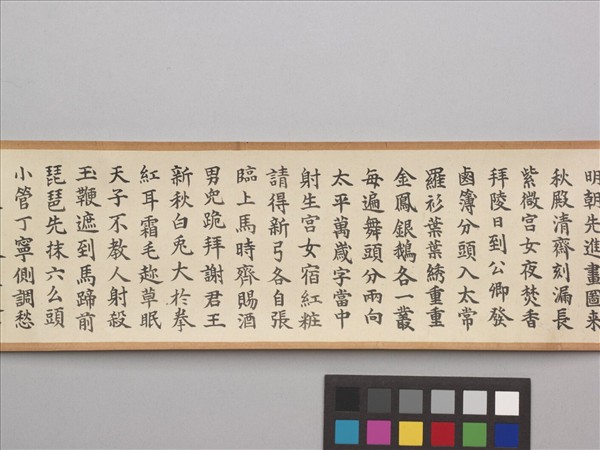 明朝先進畫圖来
秋殿清齊刻漏長
紫微宮女夜焚香
拜陵日到公卿發
鹵簿分頭入太常
羅衫葉葉綉重重
金鳳銀鵝各一叢
每遍舞頭分兩向
太平萬歲字當中
射生宮女宿紅粧
請得新弓各自張
臨上馬時齊賜酒
男兒跪拜謝君王
新秋白兔大於拳
紅耳霜毛趂草眠
天子不教人射殺
玉鞭遮到馬蹄前
琵琶先抹六么頭
小管丁寧側調愁